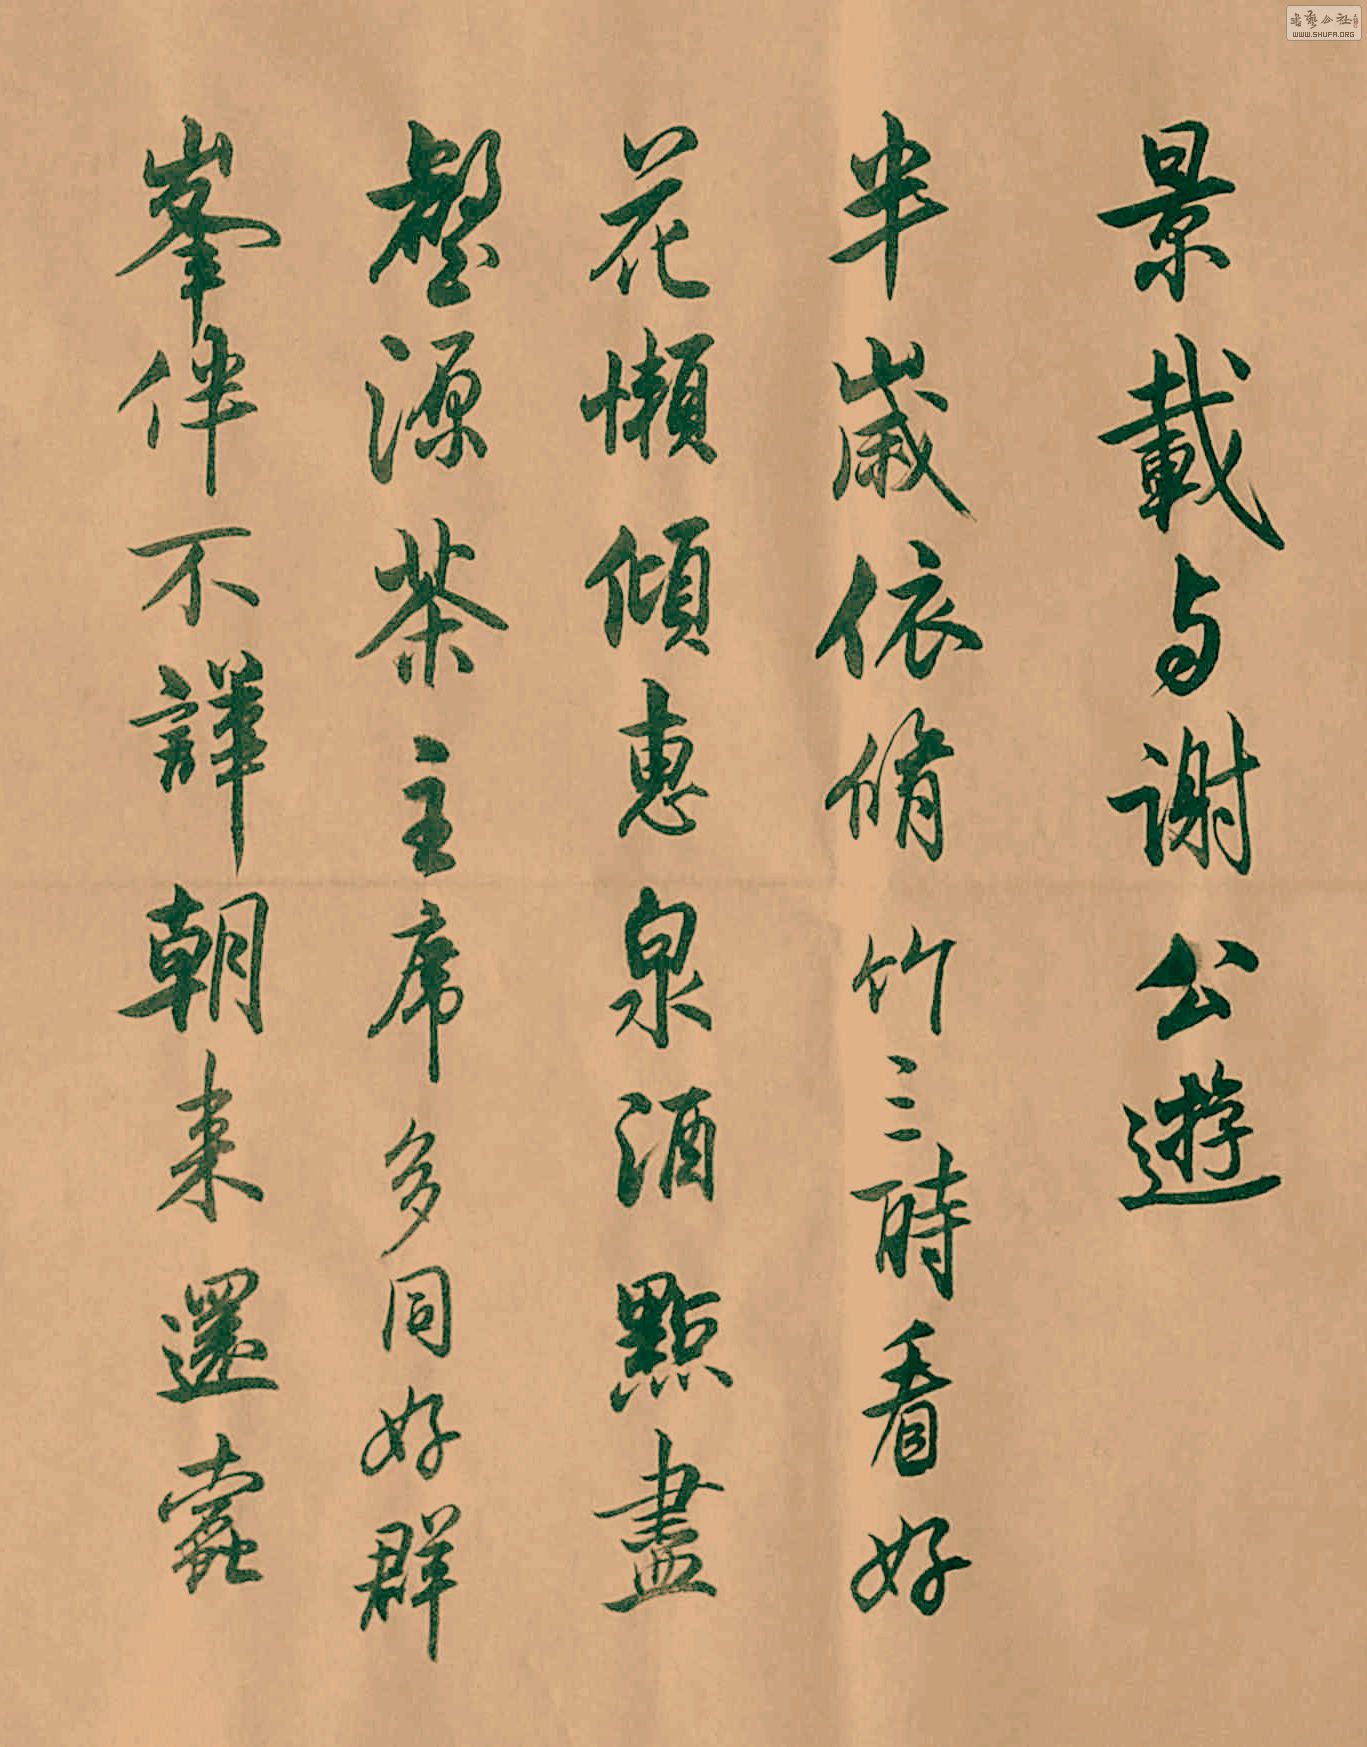 景載与謝公遊
半歲依脩竹三時看好
花懶傾惠泉酒點盡
壑源茶主席多同好群
峯伴不譁朝来還蠹
WWW.SHUFA.ORG